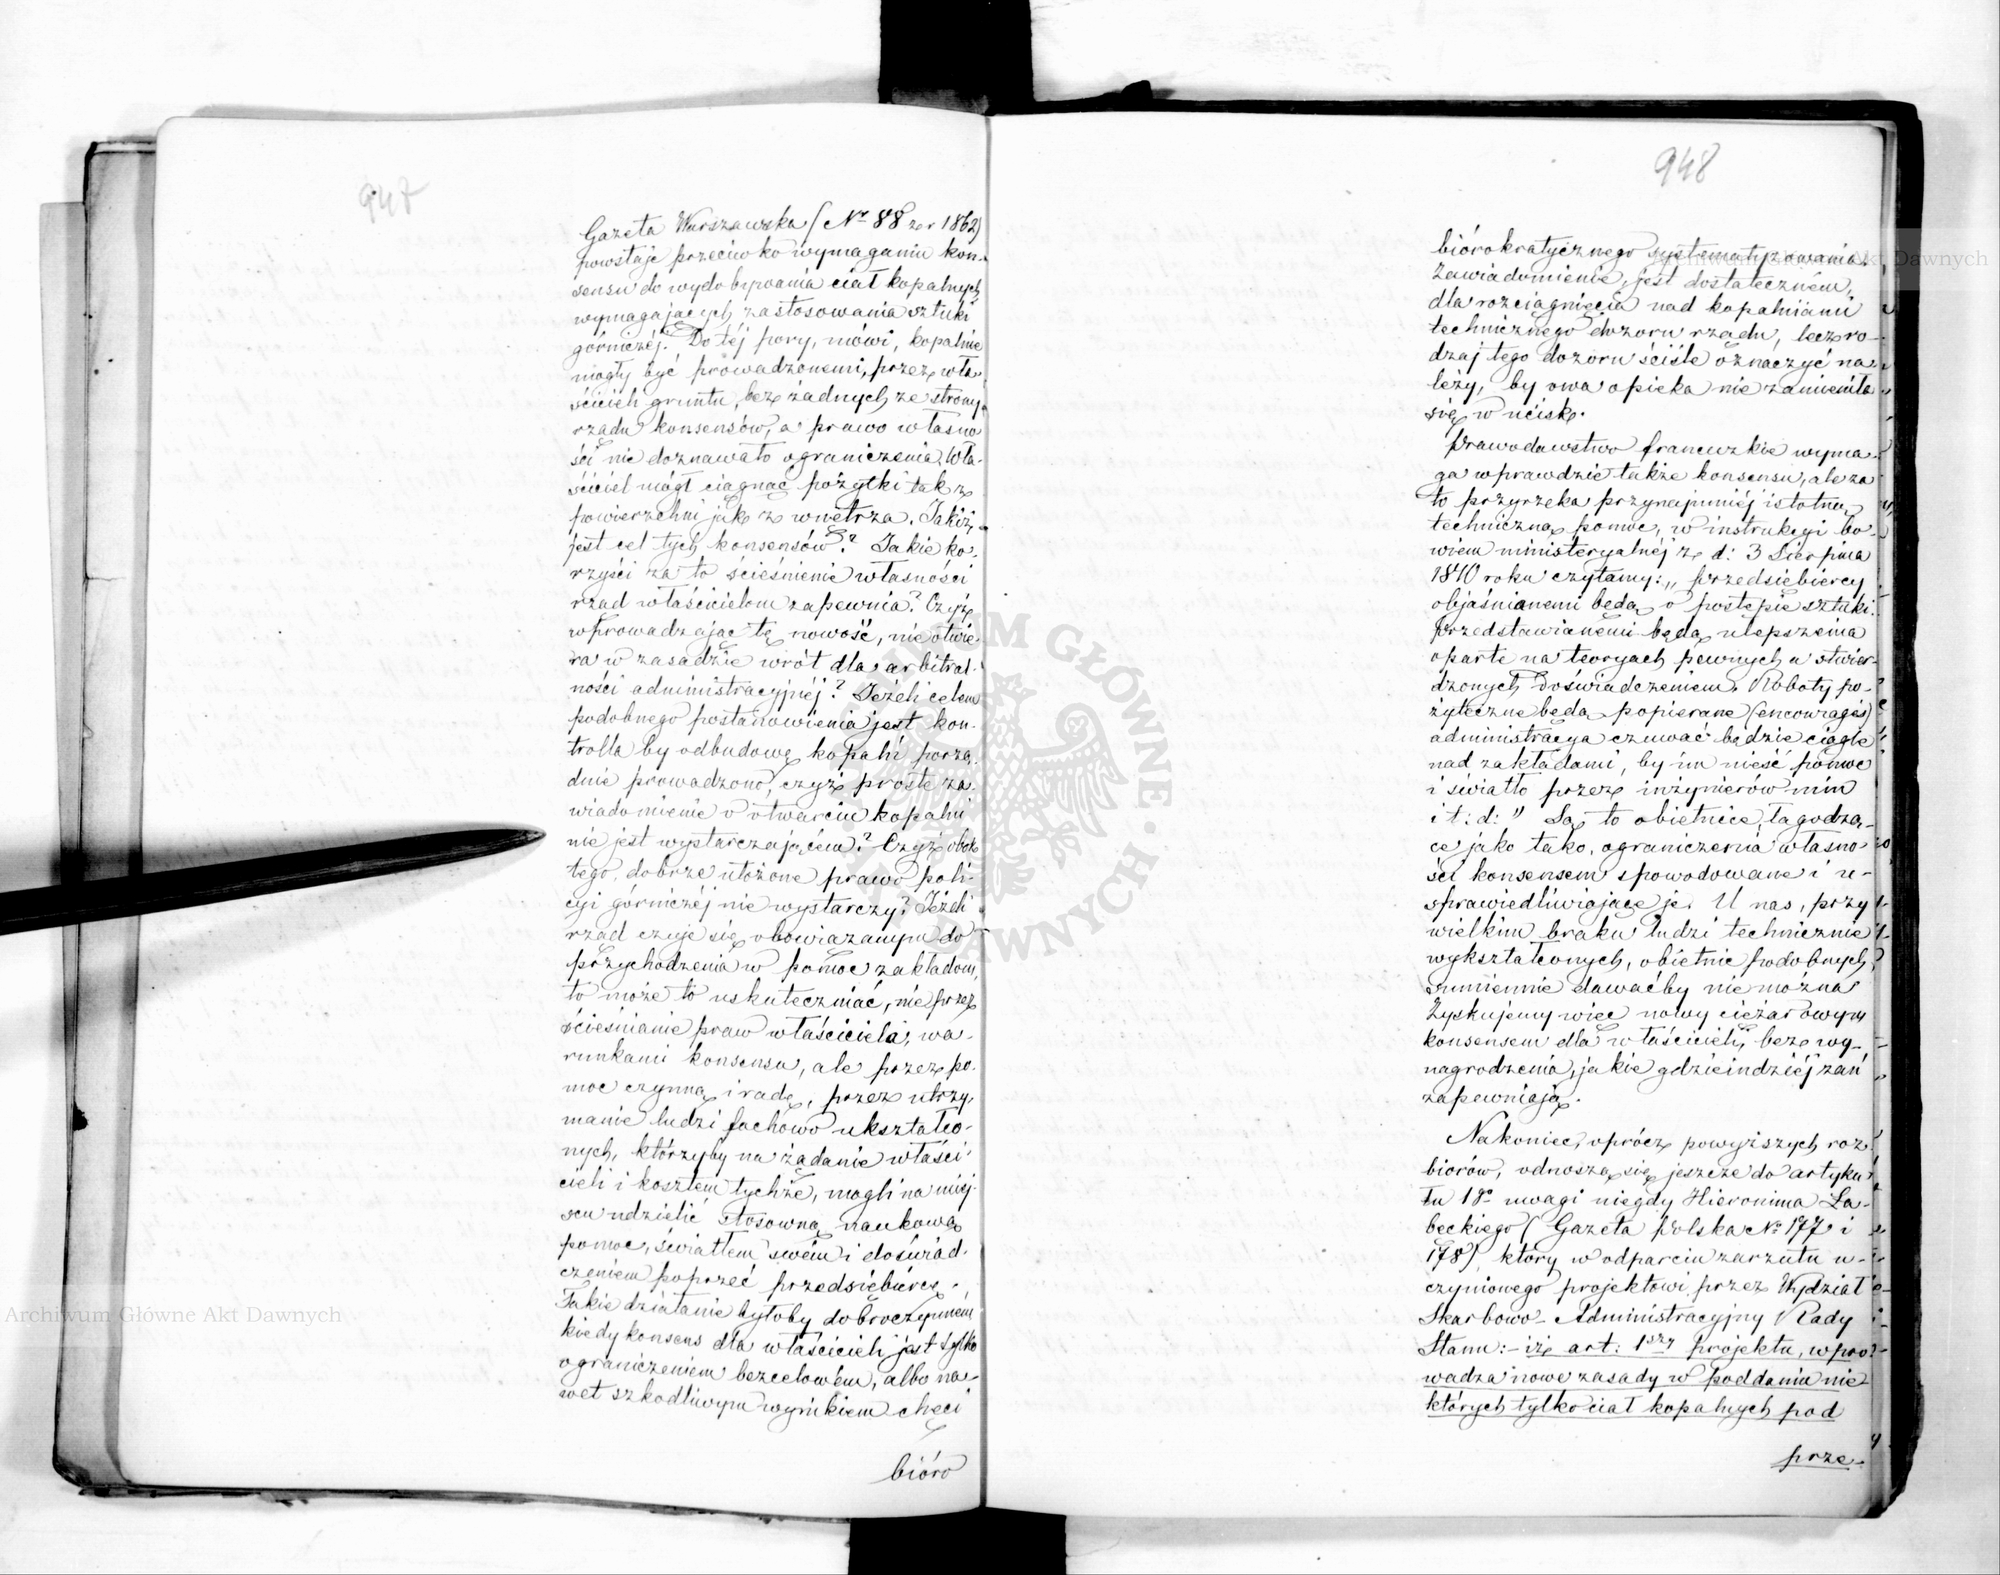 947
Gazeta Warszawska (Nr 88 z r 1862)
powstaje przeciwko wymaganiu kon-
sensu do wydobywania ciał kopalnych
wymagających zastosowania sztuki
górniczéj. Do téj pory, mówi, kopalnie
mogły być prowadzonemi, przez wła-
ścicieli gruntu, bez żadnych ze strony
rządu konsensów, a prawo własno
ści nie doznawało ograniczenia. Wła-
ściciel mógł ciągnąć pożytki tak z
powierzchni jak z wnętrza. Jakiż
jest cel tych konsensów? Jakie ko-
rzyści za to ścieśnienie własności
rząd właścicielom zapewnia? Czyż
wprowadzając tę nowość, nie otwie-
ra w zasadzie wrót dla arbitral-
ności administracyjnéj? Jeżeli celem
podobnego postanowienia jest kon-
trolla by odbudowę kopalń porzą-
dnie prowadzono, czyż proste za-
wiadomienie o otwarciu kopalni
nie jest wystarczającém? Czyż obok
tego, dobrze ułożone prawo poli-
cyi górniczéj nie wystarczy? Jeżeli
rząd czuje się obowiązanym do
przychodzenia w pomoc zakładom,
to może to uskuteczniać, nie przez
ścieśnianie praw właściciela, wa-
runkami konsensu, ale przez po-
moc czynną i radę, przez utrzy-
manie ludzi fachowo ukształco-
nych, którzyby na żądanie właści-
cieli i kosztem tychże, mogli na miej-
scu udzielić stosowną naukową
pomoc, światłem swém i doświad-
czeniem poprzeć przedsiębiercę.
Takie działanie byłoby dobroczynném
kiedy konsens dla właścicieli jest tylko
ograniczeniem bezcelowém, albo na-
wet szkodliwym wynikiem chęci
bióro
948
biórokratycznego systematyzowania.
Zawiadomienie, jest dostateczném,
dla rozciągnięcia nad kopalniami
technicznego dozoru rządu, lecz ro-
dzaj tego dozoru ściśle oznaczyć na-
leży, by owa opieka nie zamieniła
się w ucisk.
Prawodawstwo francuzkie wyma-
ga wprawdzie także konsensu, ale za
to przyrzeka przynajmniéj istotną
techniczną pomoc, w instrukcyi bo-
wiem ministeryalnéj z d: 3 Sierpnia
1810 roku czytamy: „przedsiębiercy
objaśnianemi będą o postępie sztuki.
Przedstawianemi będą ulepszenia
oparte na teoryach pewnych a stwier-
dzonych doświadczeniem. Roboty po-
żyteczne będą popierane (encouragés)
administracya czuwać będzie ciągle
nad zakładami, by im nieść pomoc
i światło przez inżynierów min
i t: d: " Są to obietnice, łagodzą-
ce jako tako, ograniczenia własno
ści konsensem spowodowane i u-
sprawiedliwiające je. U nas, przy
wielkim braku ludzi technicznie
wykształconych, obietnic podobnych
sumiennie dawaćby nie można
Zyskujemy więc nowy ciężar owym
konsensem dla właścicieli, bez wy-
nagrodzenia, jakie gdzieindziéj zań
zapewniają.
Nakoniec, oprócz powyższych roz-
biorów, odnoszą się jeszcze do artyku-
łu 1go uwagi niegdy Hieronima Ła-
beckiego (Gazeta Polska No 177 i
178), który w odparciu zarzutu u-
czynionego projektowi przez Wydział
Skarbowo-Administracyjny Rady
Stanu:- iż art: 1szy projektu, wpro-
wadza nowe zasady w poddaniu nie
których tylko ciał kopalnych pod
prze-
Archiwum Główne Akt Dawnych
Archiwum Główne Akt Dawnych
ARCHIWUM GŁÓWNE AKT DAWNYCH